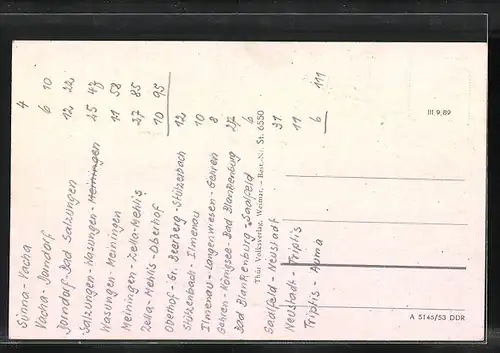 Sünna - Vacha 4
Vacha - Dorndorf 6 10
Dorndorf - Bad Salzungen 12 22
Salzungen - Wasungen - Meiningen 25 47
Wasungen - Meiningen 11 58
Meiningen - Zella-Mehlis 27 85
Zella-Mehlis - Oberhof 10 95
Oberhof - Gr. Beerberg - Stützerbach 12
Stützerbach - Ilmenau 10
Ilmenau - Langenwiesen - Gehren 8
Gehren - Königsee - Bad Blankenburg 27
Bad Blankenburg - Saalfeld 6
Thür. Volksverlag, Weimar. – Best.-Nr. St. 6550
Saalfeld - Neustadt 31
Neustadt - Triptis 11
Triptis - Auma 6 111
III/9/89
A 5146/53 DDR